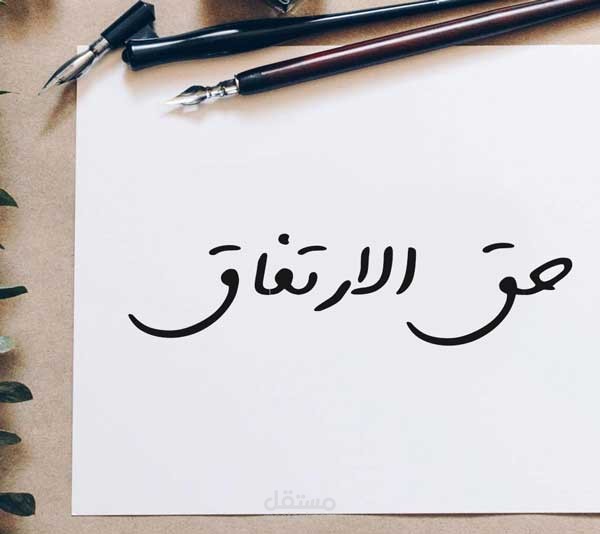 حق الارتفاق
مستقل